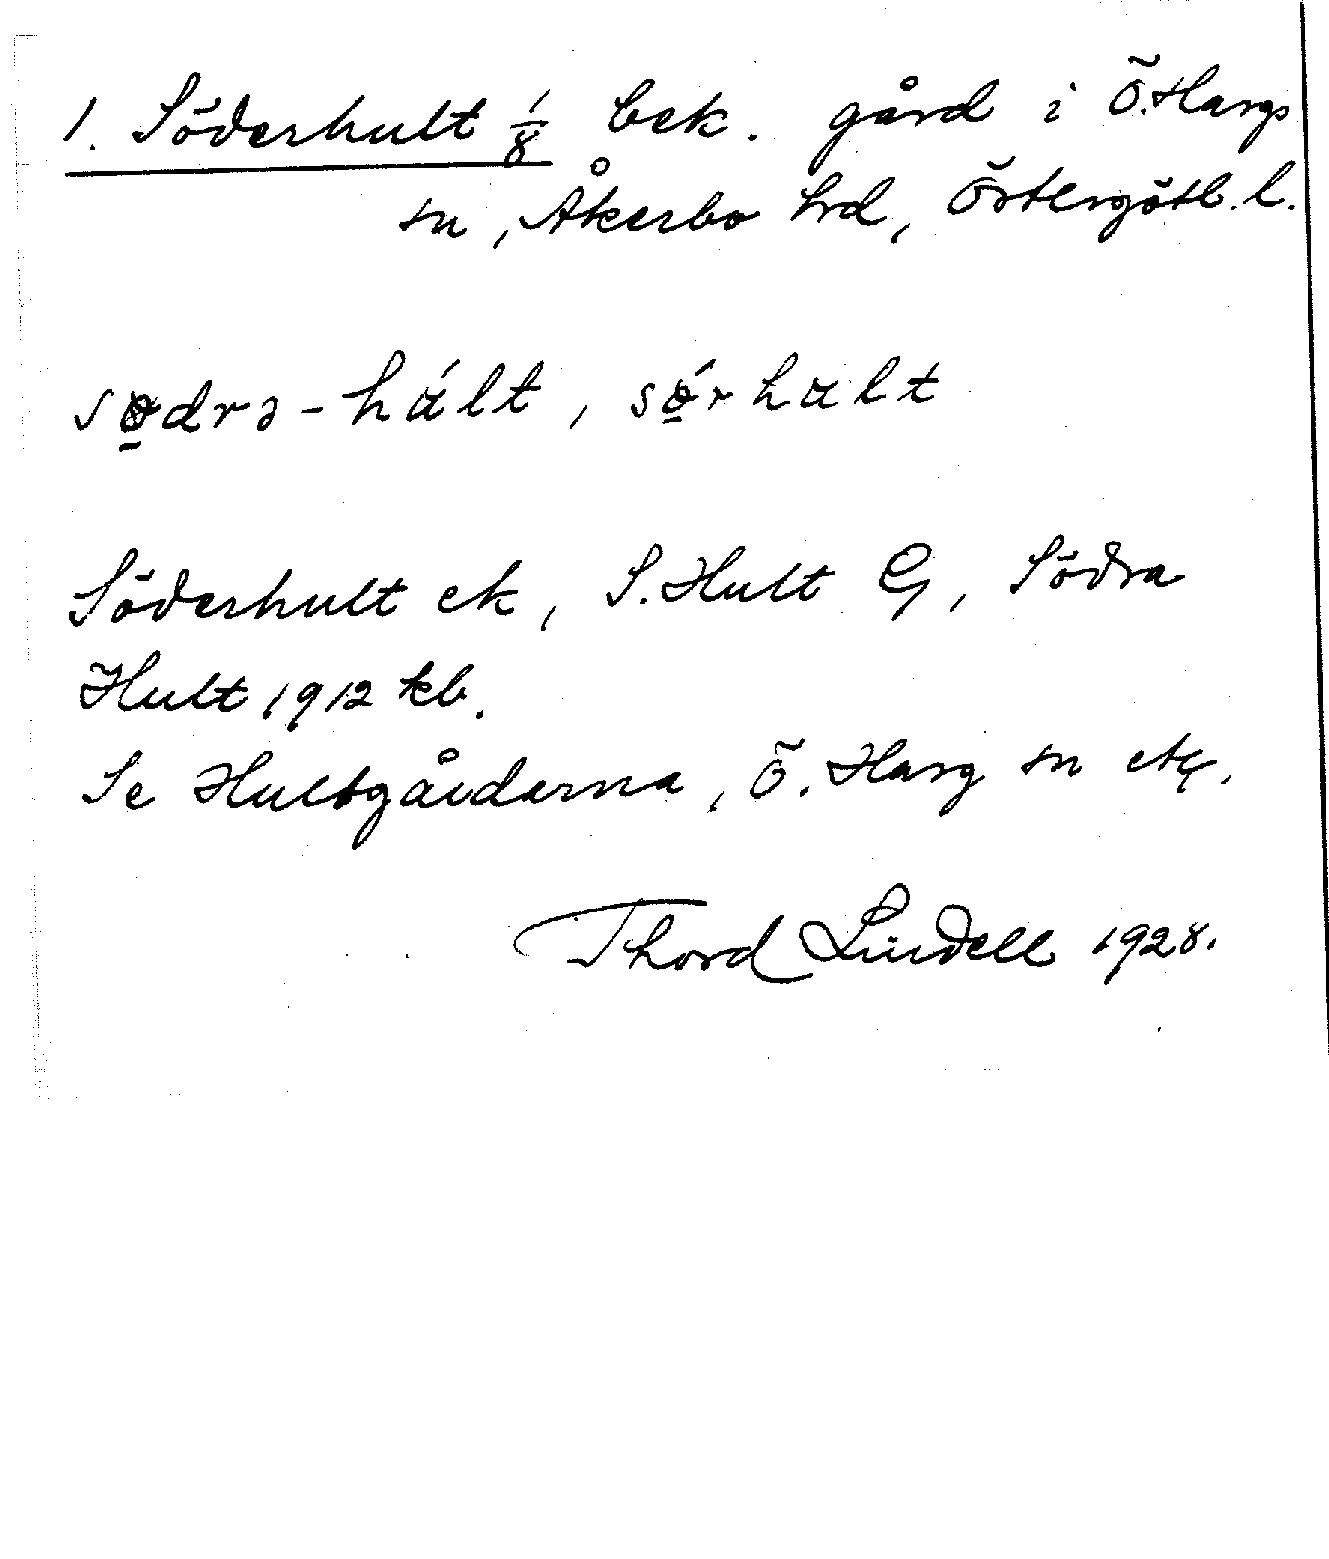 1. Söderhult 1/8 bek. gård i Ö. Hargs
sn, Åkerbo hrd, Östergötl. l.
sødrə-hált, sǿrhalt
Söderhult ek, S. Hult G, Södra
Hult 1912 kb.
Se Hultgårdarna, Ö. Harg sn etc.
Thord Lindell 1928.